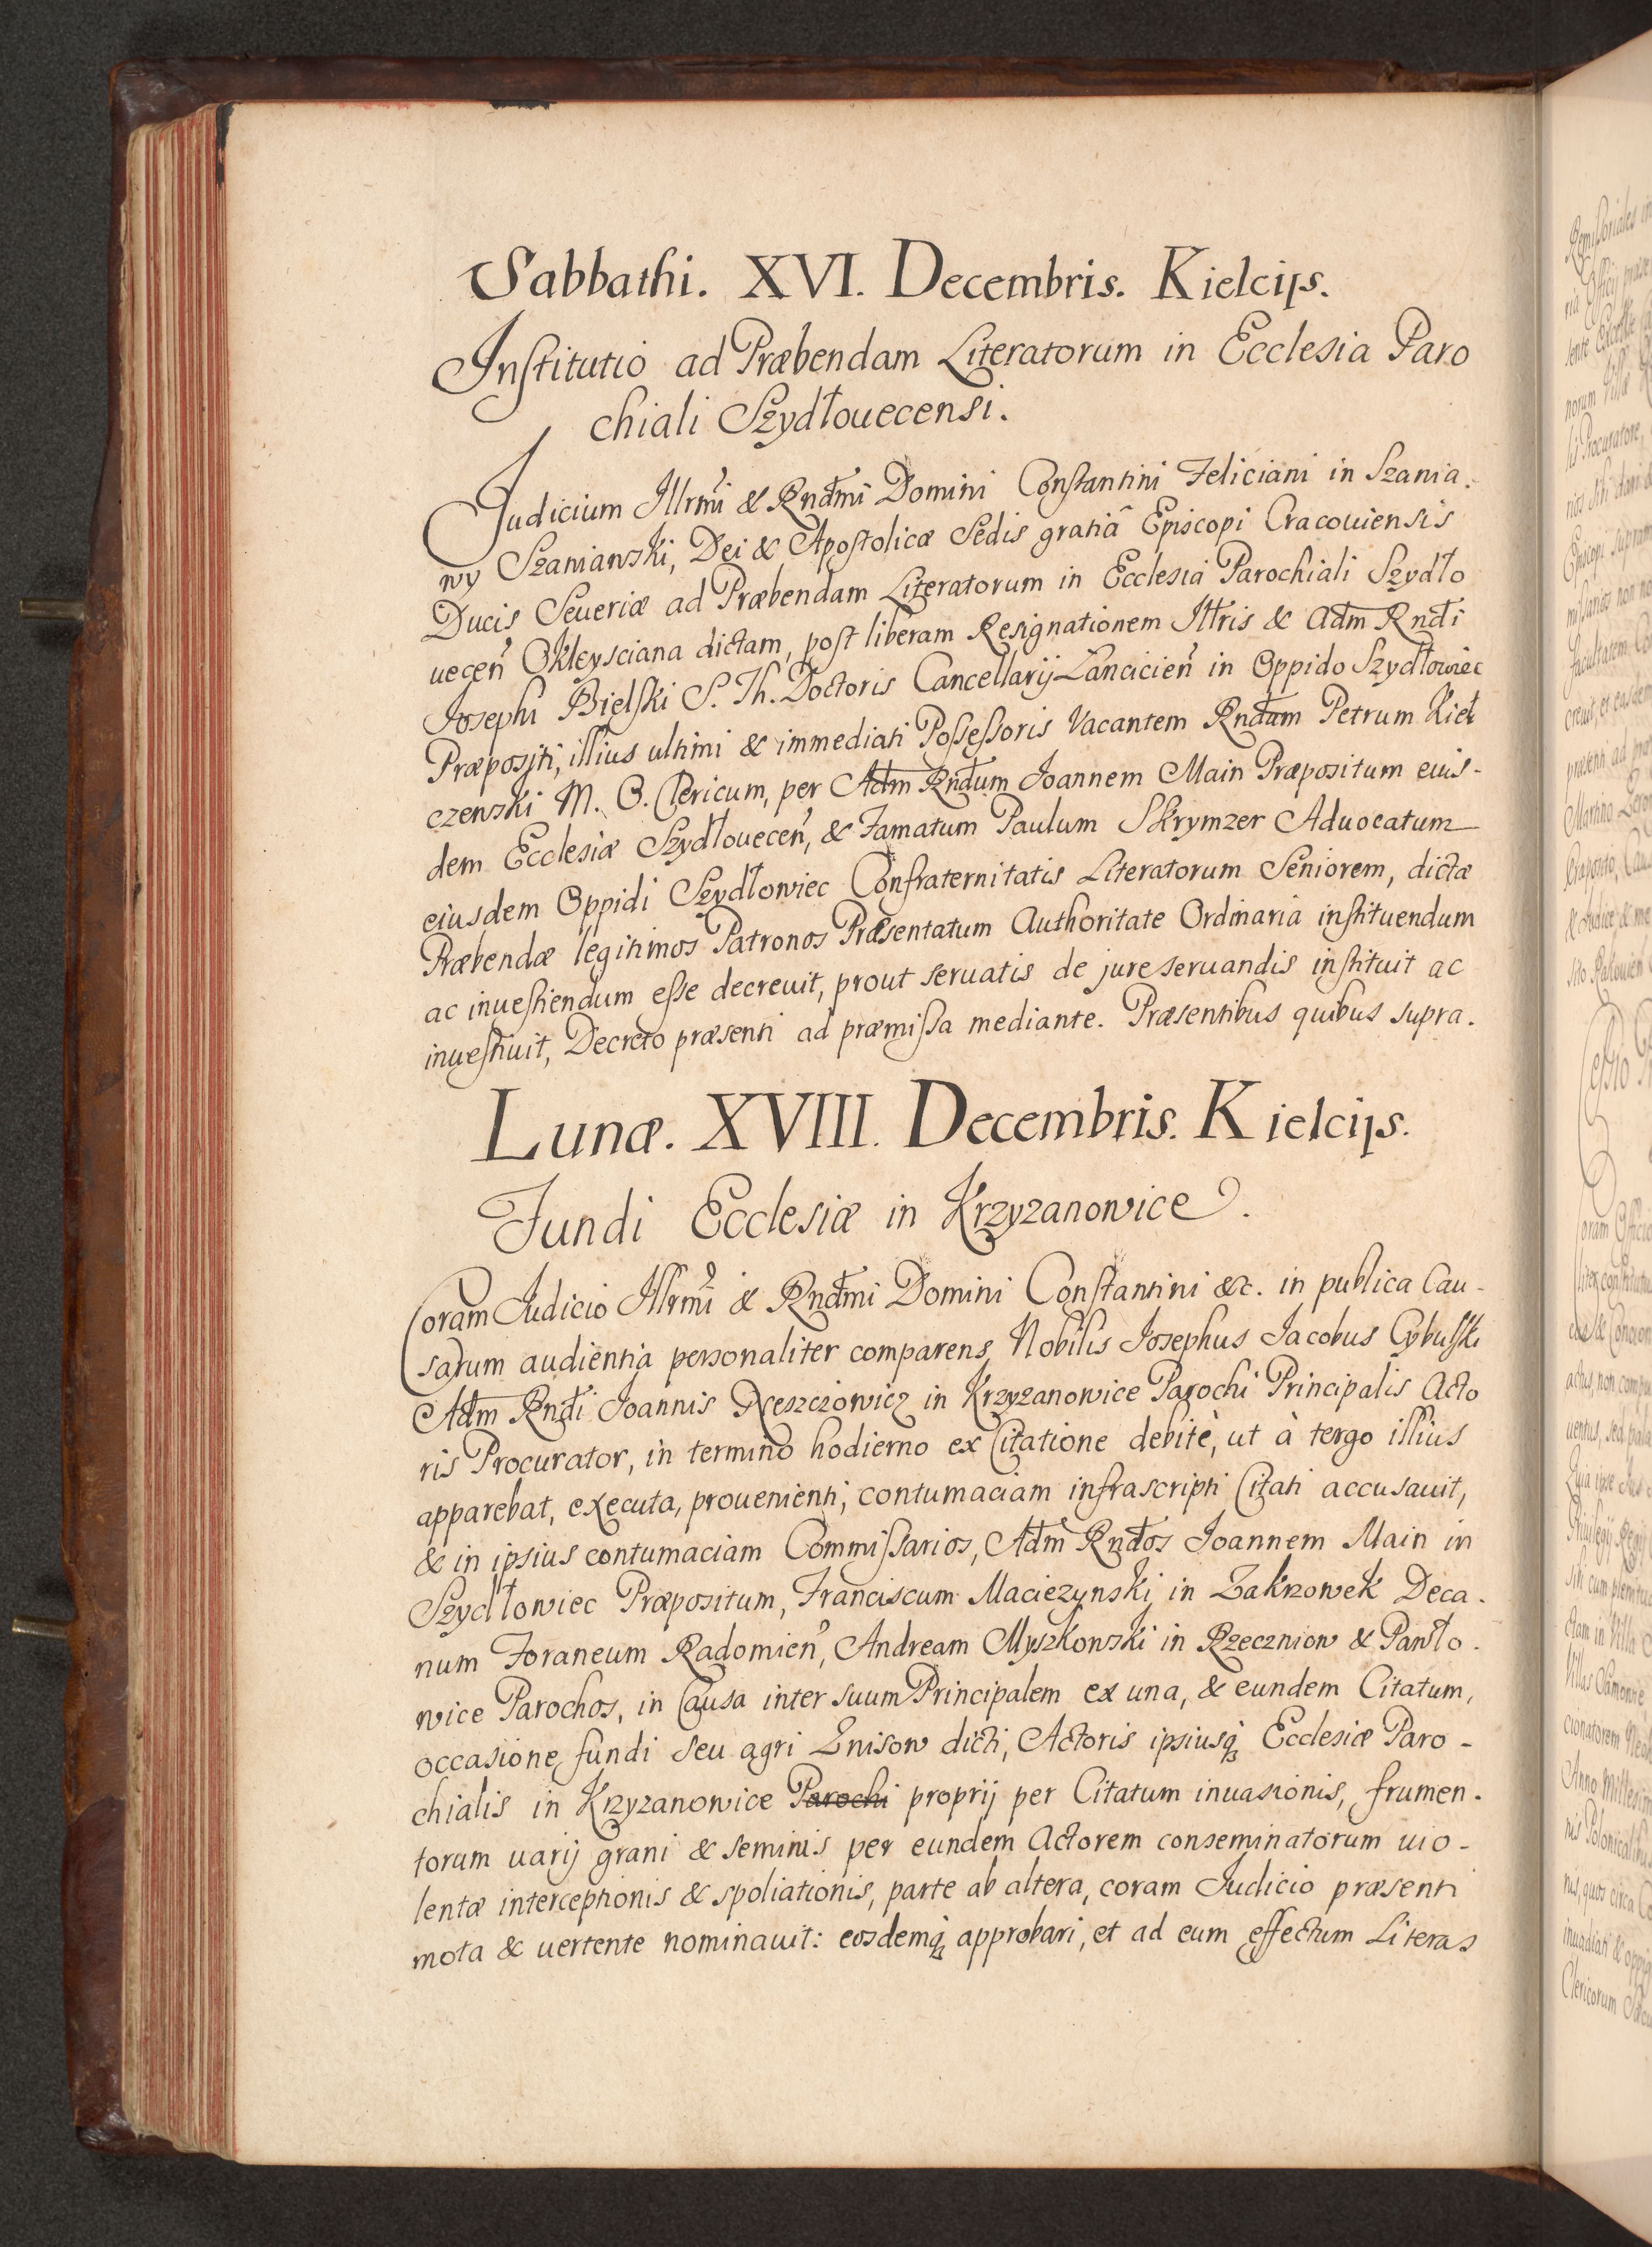 Sabbathi. XVI. Decembris. Kielcijs.
Institutio ad Præbendam Literatorum in Ecclesia Paro
chiali Szydłouecensi.
Judicium Illrmi & Rndmi Domini Constantini Feliciani in Szania.
wy Szaniawski, Dei & Apostolicæ Sedis gratiâ Episcopi Cracouiensis
Ducis Seueriæ ad Præbendam Literatorum in Ecclesia Parochiali Szydło
uecen̉ Okleysciana dictam, post liberam Resignationem Illris & Adm Rndi
Josephi Bielski S. Th. Doctoris Cancellarij Lancicien̉ in Oppido Szydłowiec
Præpositi, illius ultimi & immediati Possessoris Vacantem Rndum Petrum Kieł
czewski M. O. Clericum, per Adm Rndum Joannem Main Præpositum eius-
dem Ecclesiæ Szydłouecen̉, & Famatum Paulum Skrymzer Aduocatum
eiusdem Oppidi Szydłowiec Confraternitatis Literatorum Seniorem, dictæ
Præbendæ legitimos Patronos Præsentatum Authoritate Ordinaria instituendum
ac inuestiendum esse decreuit, prout seruatis de jure seruandis instituit ac
inuestiuit, Decreto præsenti ad præmissa mediante. Præsentibus quibus supra.
Lunæ. XVIII. Decembris. Kielcijs.
Fundi Ecclesiæ in Krzyzanowice.
Coram Judicio Illrmi & Rndmi Domini Constantini &c. in publica Cau-
sarum audientia personaliter comparens Nobilis Josephus Jacobus Cybulski
Adm Rndi Joannis Xeszczowicz in Krzyzanowice Parochi Principalis Acto
ris Procurator, in termino hodierno ex Citatione debitè, ut à tergo illius
apparebat, executa, prouenienti, contumaciam infrascripti Citati accusauit,
& in ipsius contumaciam Commissarios, Adm Rndos Joannem Main in
Szydłowiec Præpositum, Franciscum Macieżynski in Zakrzowek Deca-
num Foraneum Radomien̉, Andream Myszkowski in Rzeczniow & Pawło-
wice Parochos, in Causa inter suum Principalem ex una, & eundem Citatum,
occasione fundi seu agri Enisow dicti, Actoris ipsiusq; Ecclesiæ Paro-
chialis in Krzyzanowice Parochi proprij per Citatum inuasionis, frumen-
torum uarij grani & seminis per eundem Actorem conseminatorum uio-
lentæ interceptionis & spoliationis, parte ab altera, coram Judicio præsenti
mota & uertente nominauit: eosdemq; approbari, et ad eum effectum Literas